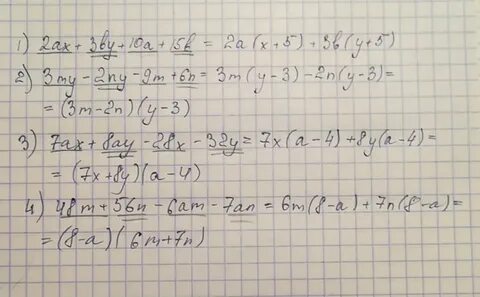 1) 2ax + 3by + 10a + 15b = 2a(x+5) + 3b(y+5)
2) 3my - 2ny - 9m + 6n = 3m(y-3) - 2n(y-3) =
= (3m-2n)(y-3)
3) 7ax + 8ay - 28x - 32y = 7x(a-4) + 8y(a-4) =
= (7x+8y)(a-4)
4) 48m + 56n - 6am - 7an = 6m(8-a) + 7n(8-a) =
= (8-a)(6m+7n)